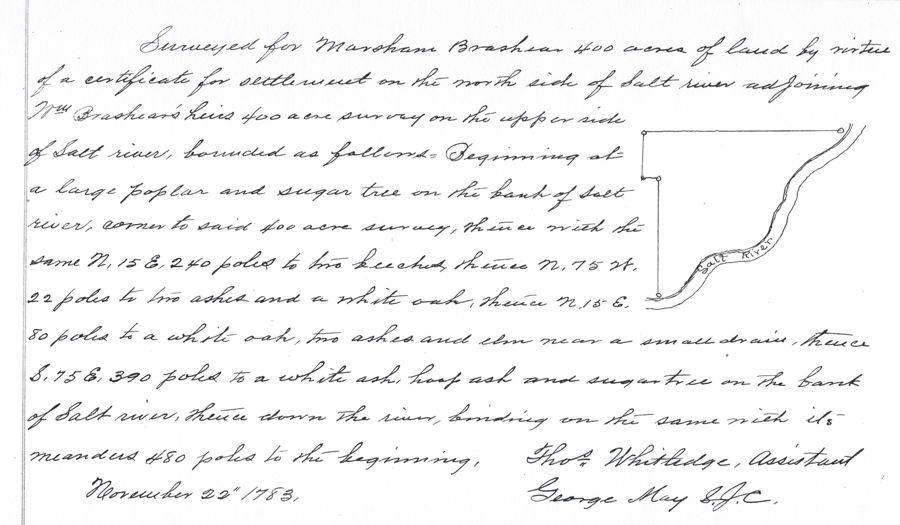 Surveyed for Marsham Brashear 400 acres of land by virtue
of a certificate for settlement on the north side of Salt river adjoining
Wm Brashear's heirs 400 acre survey on the upper side
of Salt river, bounded as follows = Beginning at
a large poplar and sugar tree on the bank of Salt
river, corner to said 400 acre survey, thence with the
same N. 15 E. 240 poles to two beeches, thence N. 75 W.
22 poles to two ashes and a white oak, thence N. 15 E.
80 poles to a white oak, two ashes and elm near a small drain, thence
S. 75 E. 390 poles to a white ash, hoop ash and sugartree on the bank
of Salt river, thence down the river, binding on the same with its
meanders 480 poles to the beginning.
Thos. Whitledge, Assistant
November 22" 1783.
George May S.J.C.
Salt River